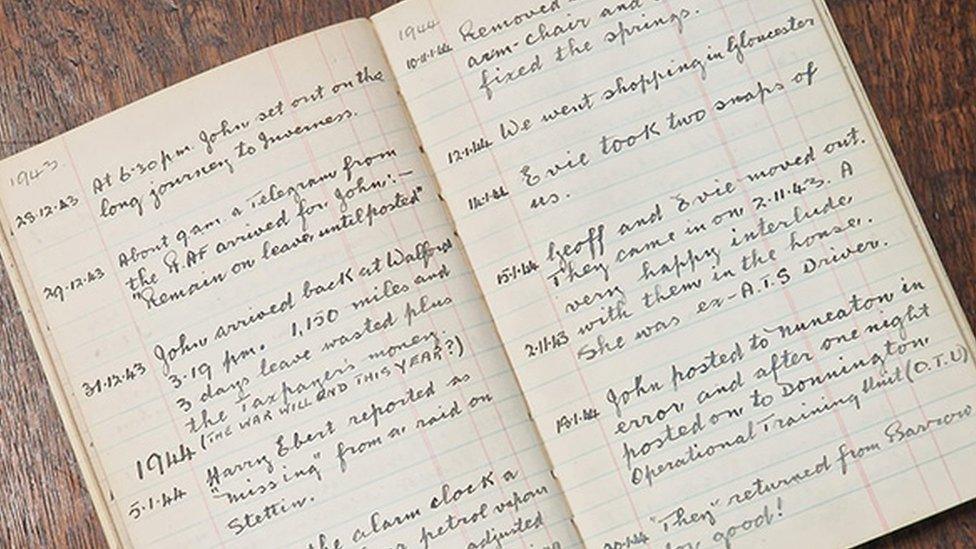 1943
28.12.43 At 6.30 p.m. John set out on the
long journey to Inverness.
29.12.43 About 9 am. a Telegram from
the R.AF arrived for John:-
"Remain on leave, until posted"
31.12.43 John arrived back at Walford
3.19 pm. 1,150 miles and
3 days leave wasted plus
the Taxpayer's money.
(THE WAR WILL END THIS YEAR?)
1944
5.1.44 Harry Ebert reported as
"missing" from a raid on
Stettin.
the alarm clock a
petrol vapour
adjusted
1944
10.1.44 Removed
arm-chair and
fixed the springs.
12.1.44 We went shopping in Gloucester
14.1.44 Evie took two snaps of
us.
15.1.44 Geoff and Evie moved out.
They came in on 2.11.43. A
very happy interlude
2.11.43 with them in the house.
She was ex-A.T.S Driver.
18.1.44 John posted to Nuneaton in
error, and after one night
posted on to Donnington.
Operational Training Unit (O.T.U)
"They" returned from Barrow
for good!